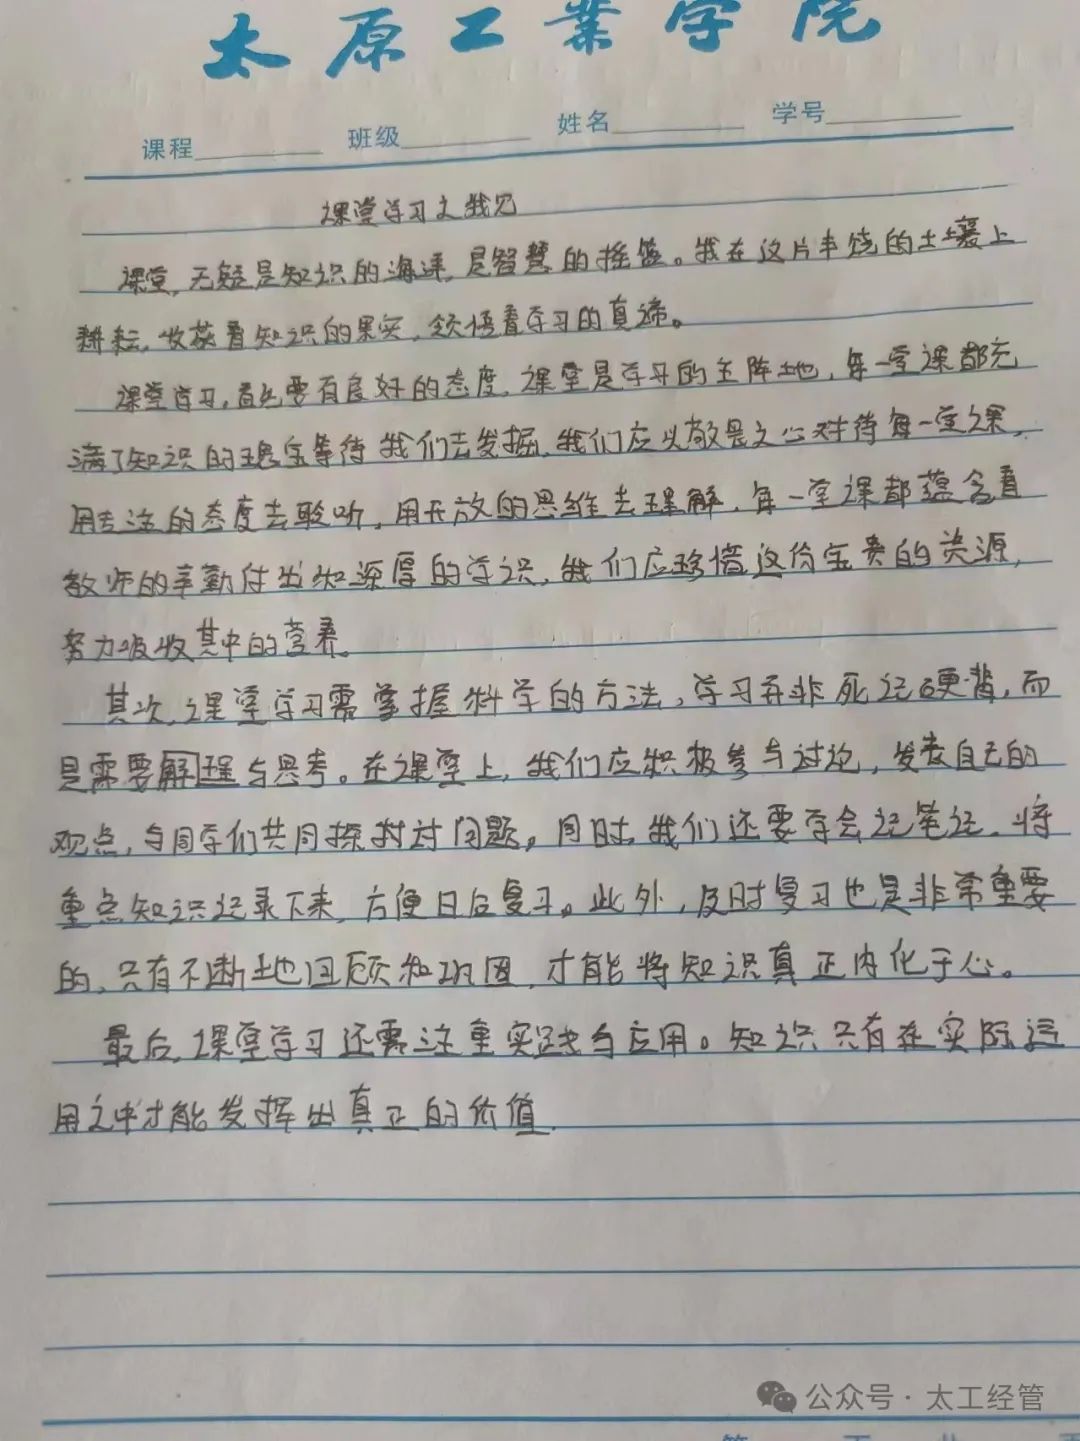 太原工业学院
课程 班级 姓名 学号
课堂学习之我见
课堂,无疑是知识的海洋,是智慧的摇篮。我在这片丰饶的土壤上
耕耘,收获着知识的果实,领悟着学习的真谛。
课堂学习,首先要有良好的态度,课堂是学习的主阵地,每一堂课都充
满了知识的瑰宝等待我们去发掘,我们应以敬畏之心对待每一堂课,
用专注的态度去聆听,用开放的思维去理解,每一堂课都蕴含着
教师的辛勤付出和深厚的学识,我们应珍惜这份宝贵的资源,
努力吸收其中的营养。
其次,课堂学习需掌握科学的方法,学习并非死记硬背,而
是需要解理与思考。在课堂上,我们应积极参与讨论,发表自己的
观点,与同学们共同探讨问题。同时,我们还要学会记笔记,将
重点知识记录下来,方便日后复习。此外,及时复习也是非常重要
的,只有不断地回顾和巩固,才能将知识真正内化于心。
最后,课堂学习还需注重实践与应用。知识只有在实际运
用之中才能发挥出真正的价值.
公众号·太工经管